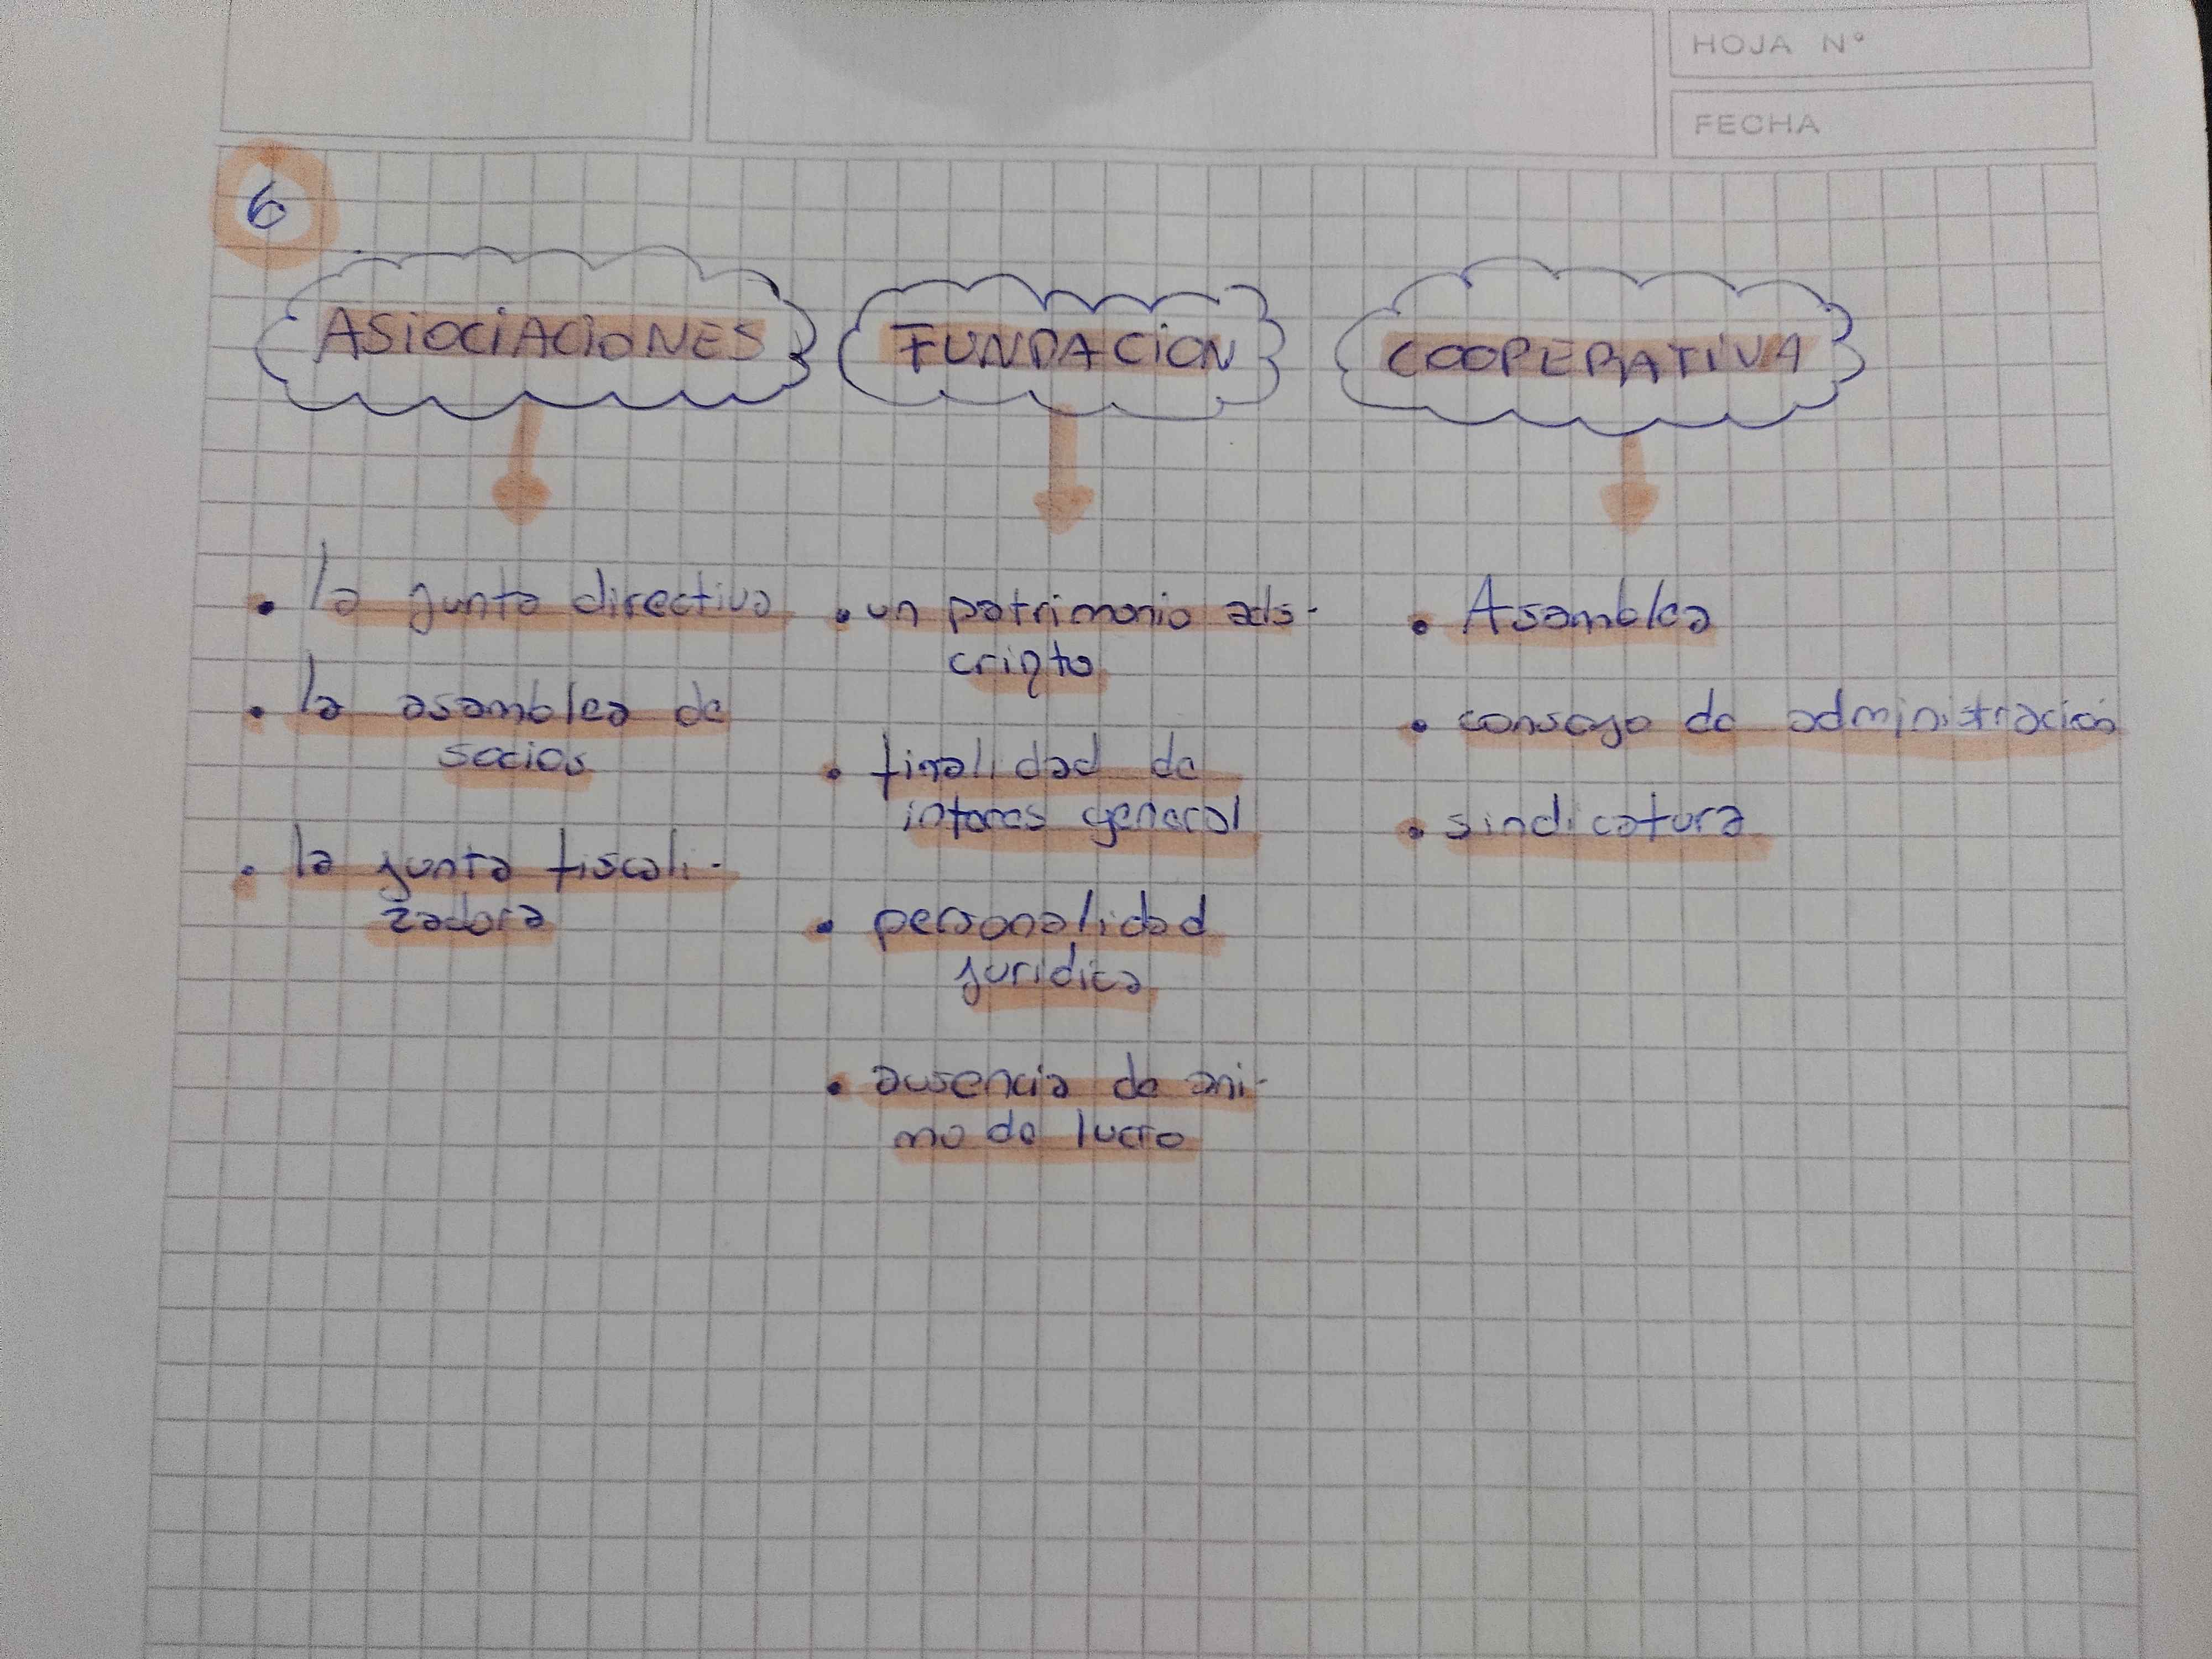 HOJA N°
FECHA
6
ASIOCIACIONES
FUNDACION
COOPERATIVA
• la junta directiva
• la asamblea de
socios
• la junta fiscali-
zadora
• un patrimonio ads-
cripto
• finalidad de
interes general
• personalidad
juridica
• ausencia de ani-
mo de lucro
• Asamblea
• consejo de administración
• sindicatura